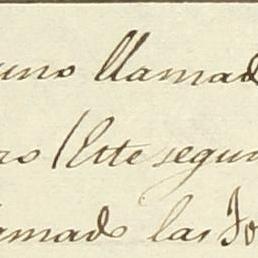 uno llamad
ro / Este segun
amado las Jo